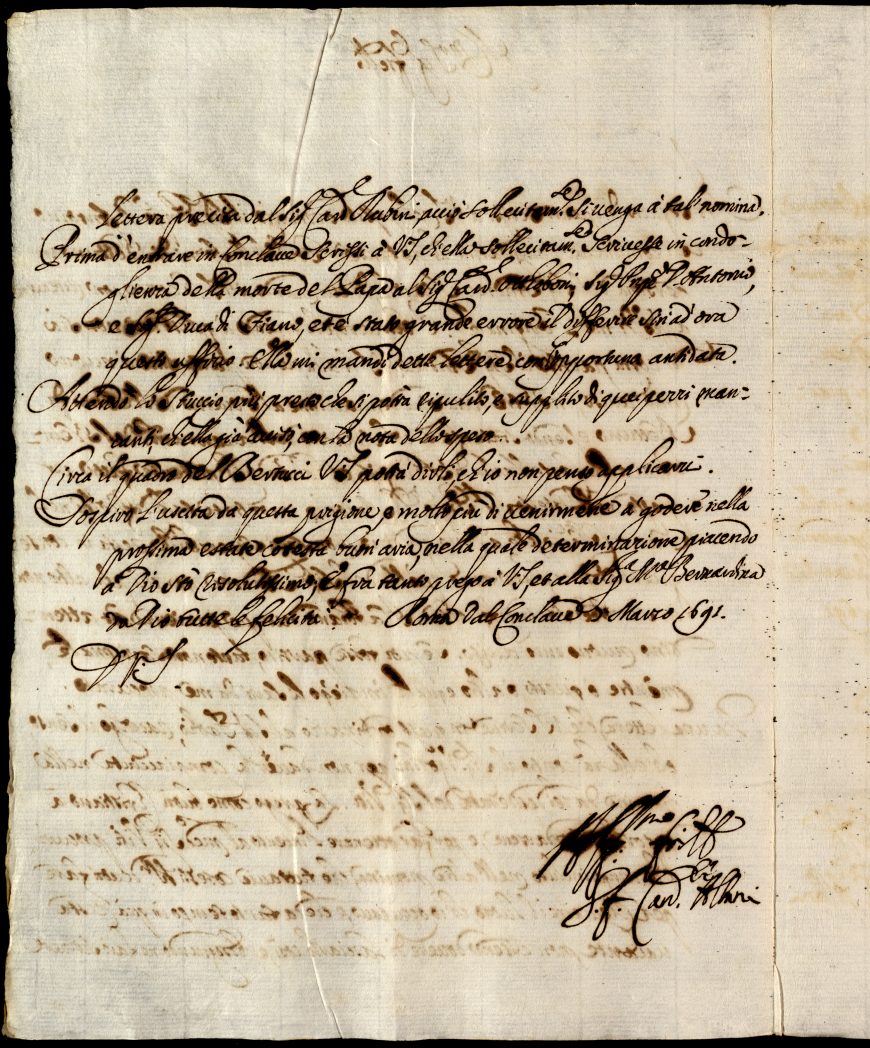 lettera precisa dal Sig.r Card. Rubini, acciò sollecitam.te si venga à tal nomina.
Prima d'entrare in Conclave scrissi à VS, ch'ella sollecitam.te scrivesse in condo-
glienza della morte del Papa al Sig.r Card. Ottoboni, Sig.r Prnpe D. Antonio,
e Sig.r Duca di Fiano, et è stato grande errore il differire sin ad ora
questo uffizio. Ella mi mandi dette lettere con opportuna antidata.
Attendo lo stuccio più presto che si potrà ripulito, e supplito di quei pezzi man-
canti, ch'ella già avvisò, con la nota della spesa.
Circa il quadro del Bertucci VS potrà dirli, ch'io non penso applicarvi.
Sospiro l'uscita da questa prigione, e molto più di venirmene à godere nella
prossima estate cotesta buon'aria, nella quale determinazione piacendo
à Dio stò risolutissimo, e fra tanto prego à VS, et alla Sig.a M.a Bernardina
da Dio tutte le felicità. Roma dal Conclave Marzo 1691.
D VS
Aff.mo
G. F. Card. Albani